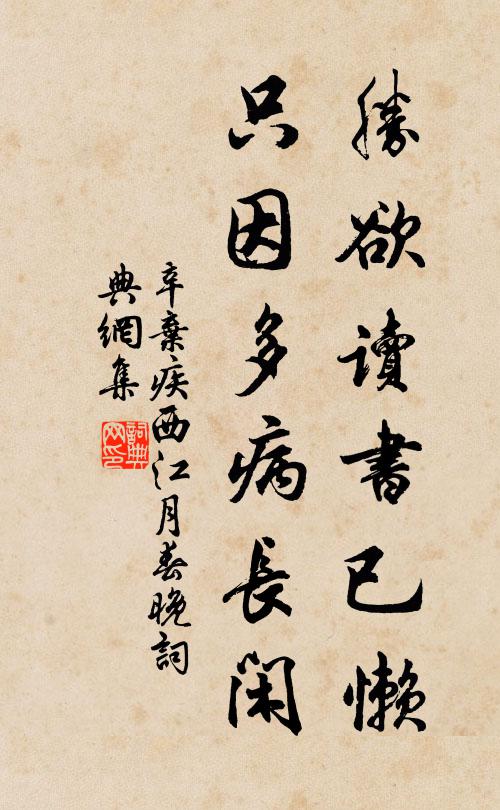 勝欲讀書已懶
只因多病長閑
辛棄疾西江月春晚詞
典網集
詞典網印